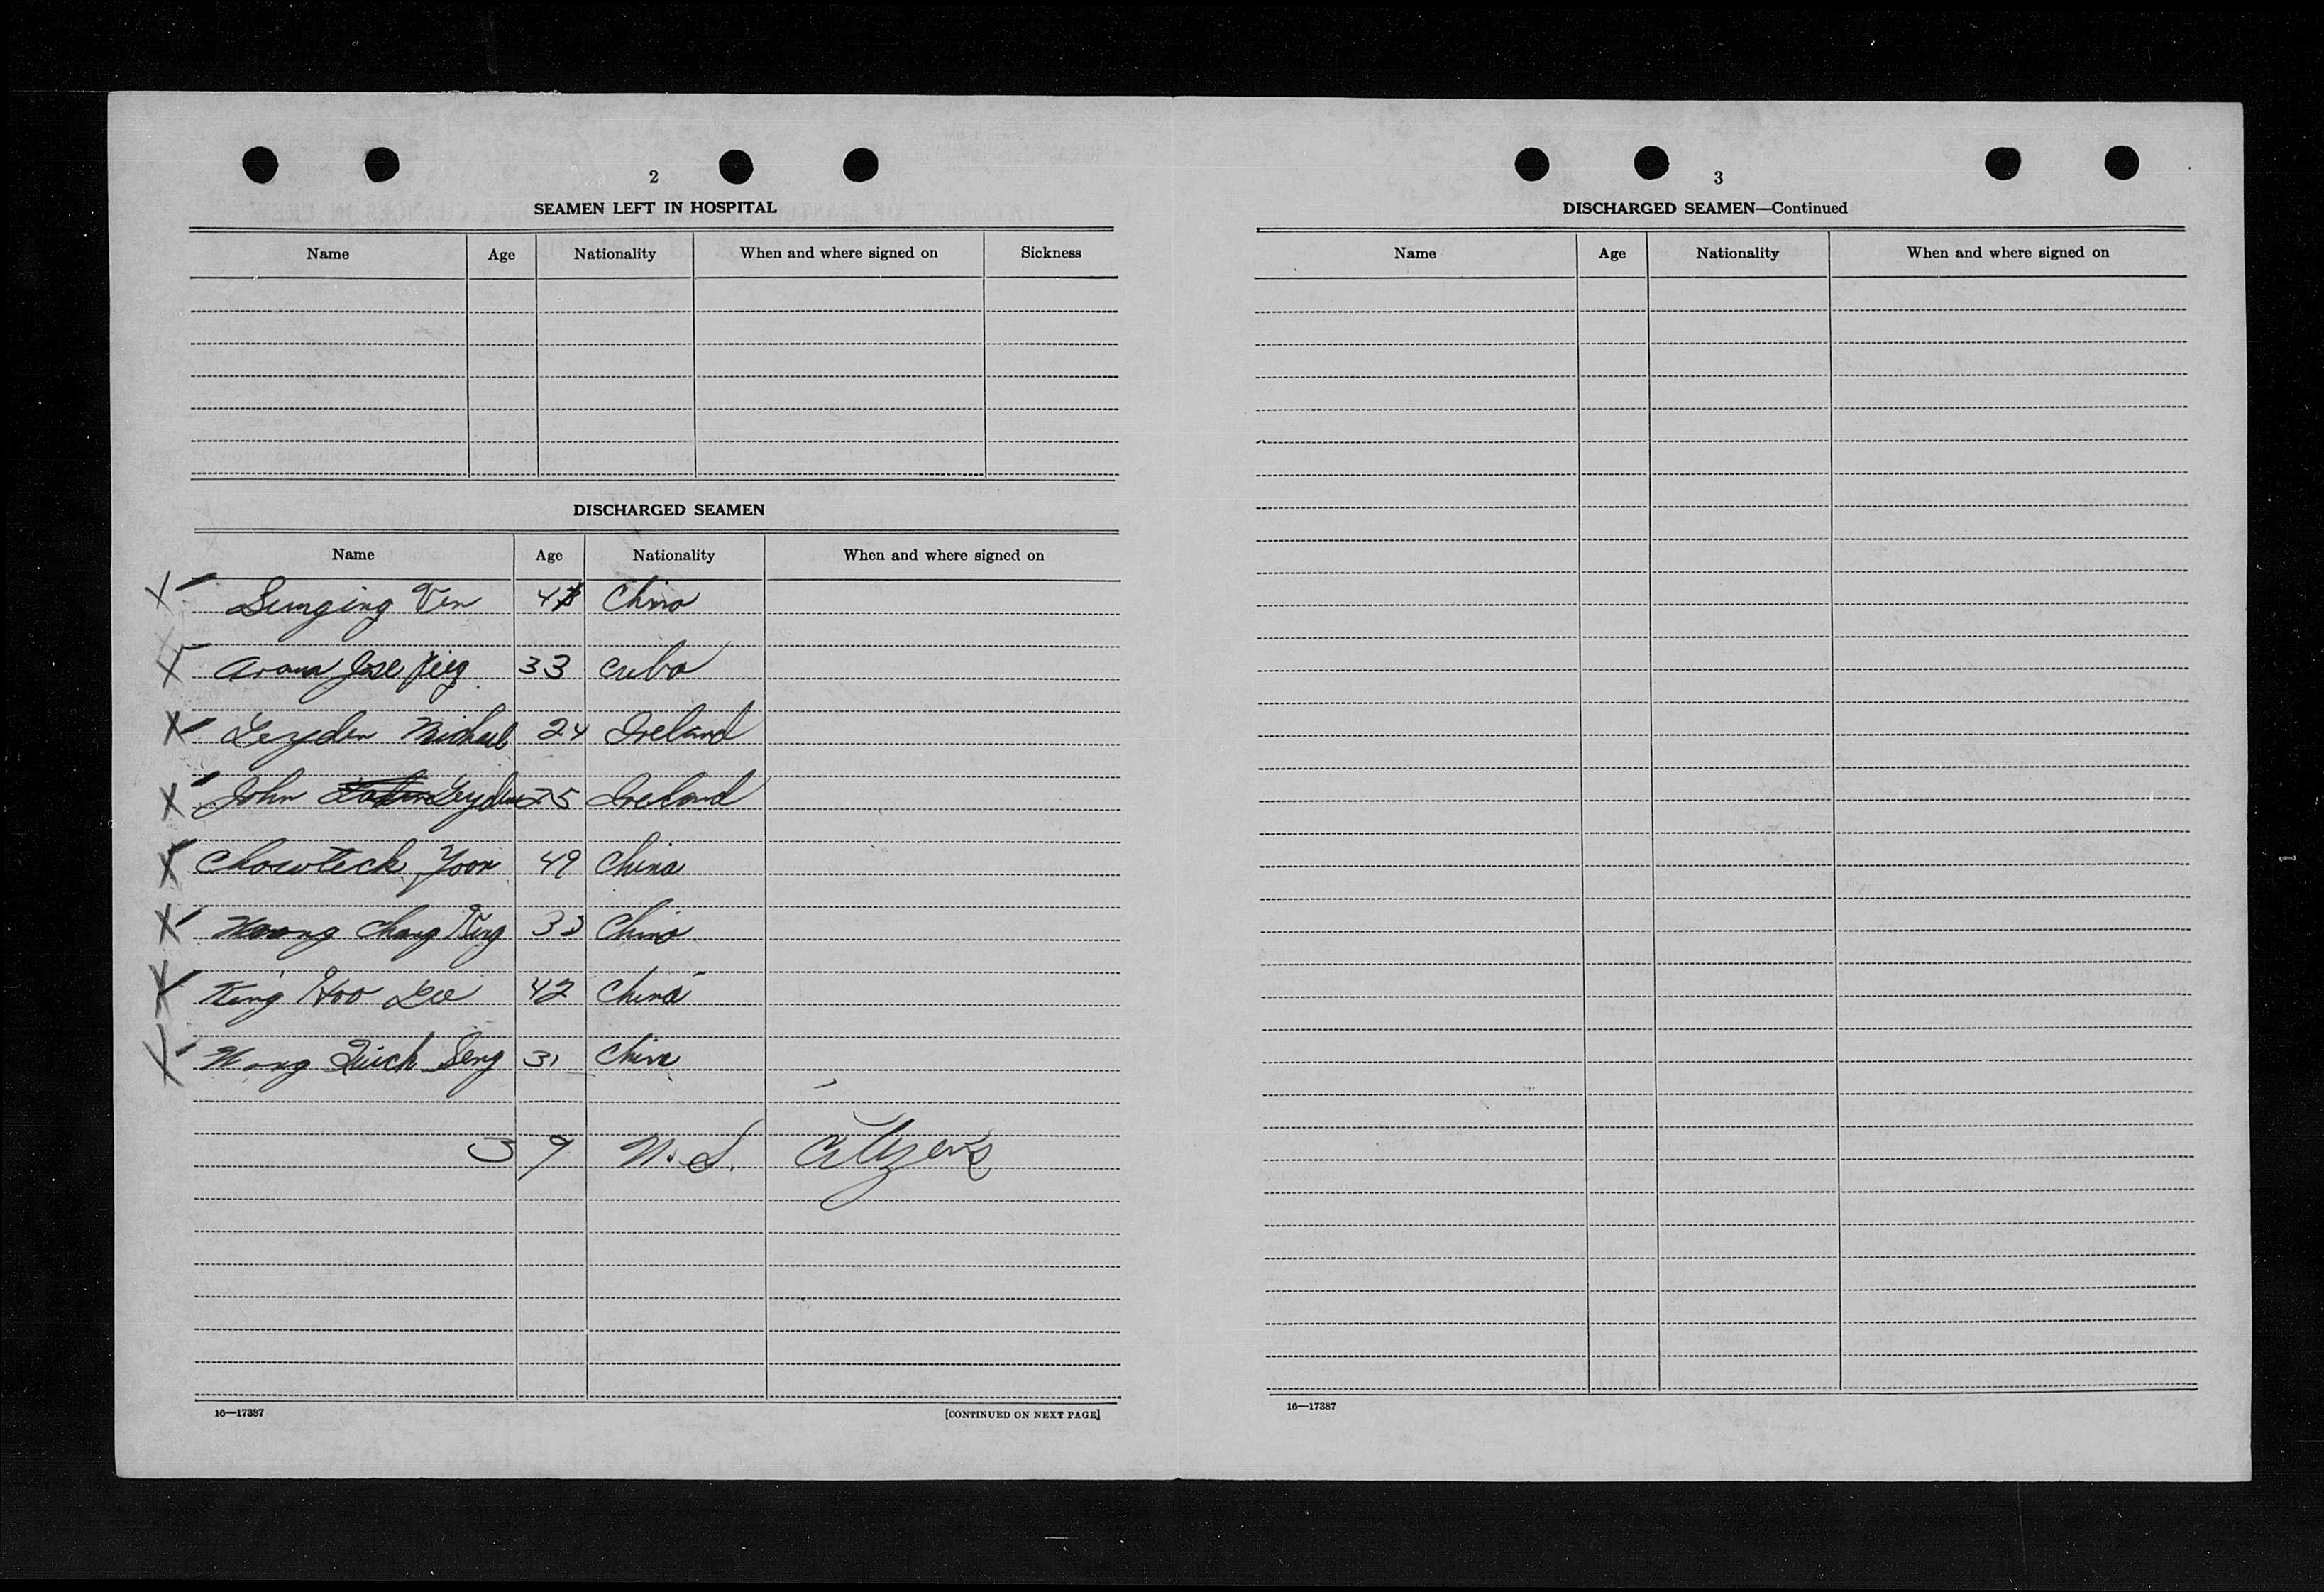 2
SEAMEN LEFT IN HOSPITAL
Name Age Nationality When and where signed on Sickness
DISCHARGED SEAMEN
Name Age Nationality When and where signed on
Ven China
Arana Jose 33 Cuba
Leyden Michael 24 Ireland
John Leyden 25 Ireland
Chowteck Yoon 49 China
Chang 33 China
King Hoo Lee 42 China
Wong Quich Seng 31 China
39 U.S. Citizens
16—17387 [CONTINUED ON NEXT PAGE]
3
DISCHARGED SEAMEN—Continued
Name Age Nationality When and where signed on
16—17387